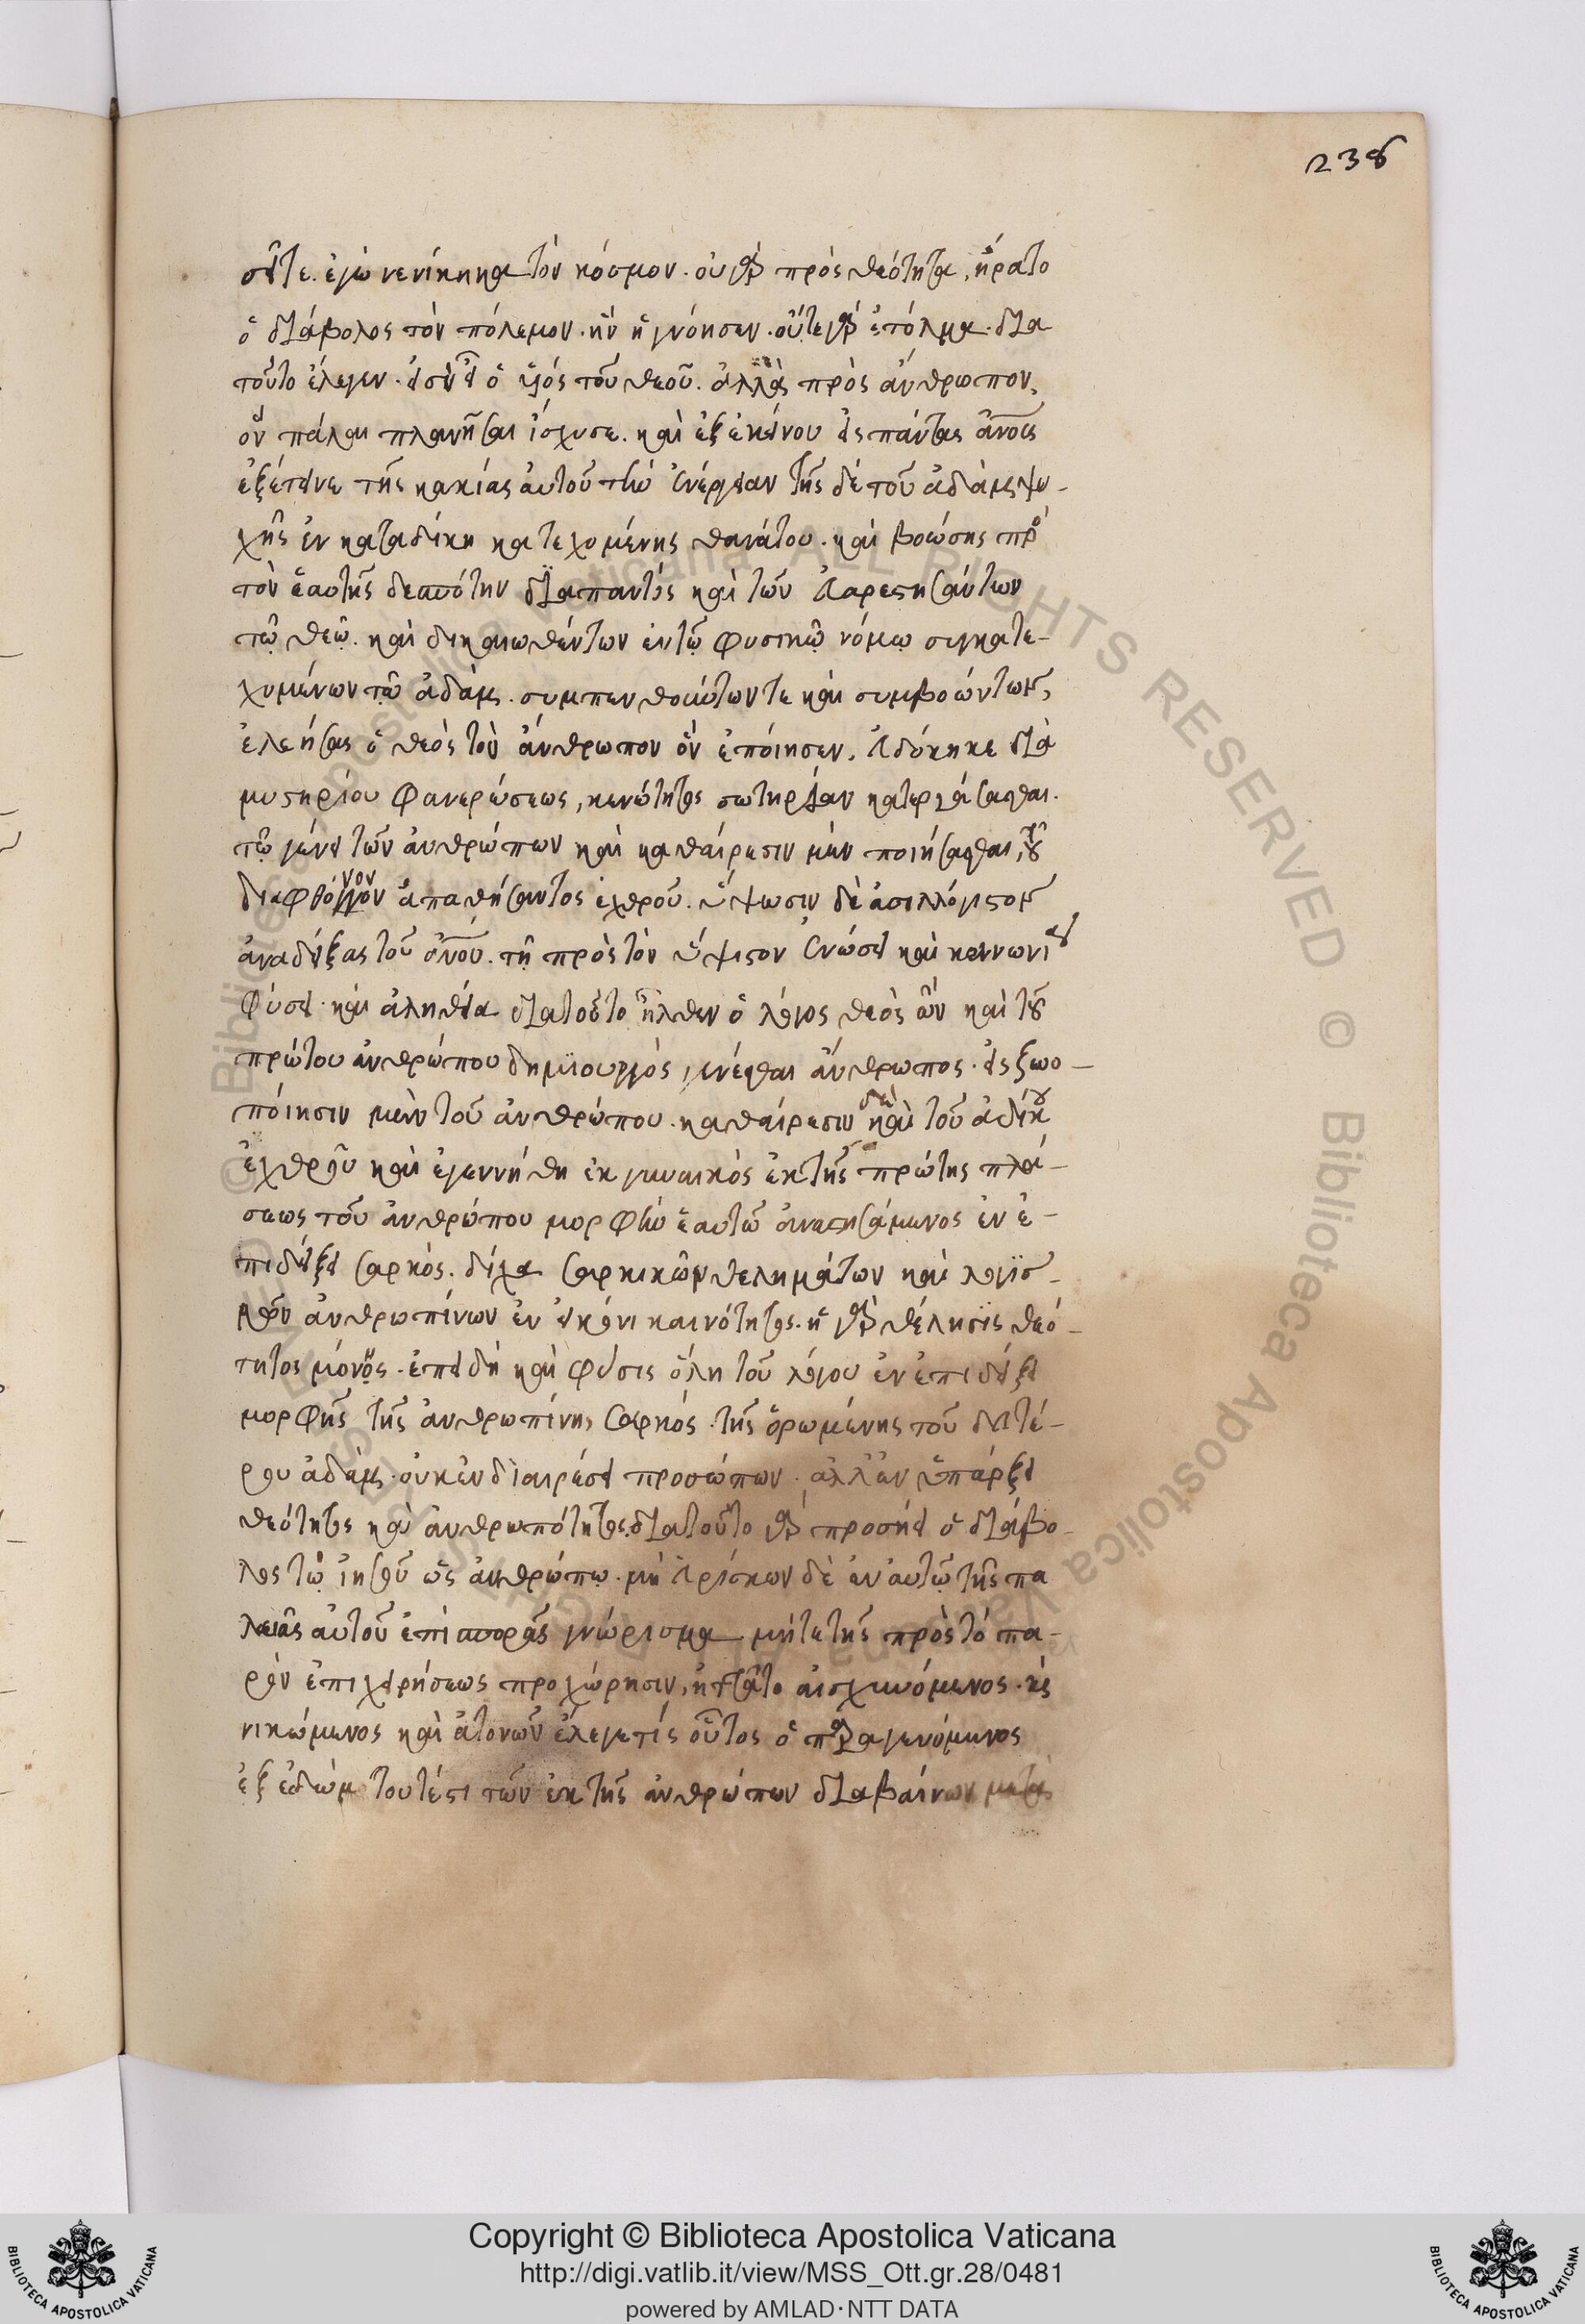 238
σεῖτε. ἐγὼ νενίκηκα τὸν κόσμον. οὐ γὰρ πρὸς θεότητα, ἤρατο
ὁ διάβολος τὸν πόλεμον. ἣν ἠγνόησεν. οὔτε γὰρ ἐτόλμα. δια
τοῦτο ἔλεγεν. εἰ σὺ εἶ ὁ υἱός τοῦ θεοῦ. ἀλλὰ πρὸς ἄνθρωπον,
ὃν πάλαι πλανῆσαι ἴσχυσε. καὶ ἐξ ἐκείνου εἰς πάντας ἀνους
ἐξέτεινε τῆς κακίας αὐτοῦ τὴν ἐνέργειαν τῆς δὲ τοῦ ἀδὰμ ψυ-
χῆς ἐν καταδίκη κατεχομένης θανάτου. καὶ βοώσης πρὸ
τὸν ἑαυτῆς δεσπότην διαπαντός καὶ τῶν εὐαρεστησάντων
τῷ θεῷ. καὶ δικαιωθέντων ἐν τῷ φυσικῷ νόμῳ συγκατε-
χομένων τῶ ἀδάμ. συμπενθούντων τε καὶ συμβοώντων,
ἐλεήσας ὁ θεὸς τὸν ἄνθρωπον ὃν ἐποίησεν, εὐδόκηκε διὰ
μυστηρίου φανερώσεως, κενότητος σωτηρίαν κατεργάσασθαι.
τῷ γένει τῶν ἀνθρώπων καὶ καθαίρεσιν μὲν ποιήσασθαι, τοῦ
διαφθόγγον νον ἀπαθήσαντος ἐχθροῦ. ὕψωσιν δὲ ἀσιλλόγιστον
ἀναδείξας τοῦ ἀνου. τῇ πρὸς τὸν ὕψιστον ἑνώσει καὶ κοινωνία
φύσει καὶ ἀληθεία διατοῦτο ἦλθεν ὁ λόγος θεὸς ὢν καὶ τοῦ
πρώτου ἀνθρώπου δημιουργὸς, γενέσθαι ἄνθρωπος. εἰς ζωο-
ποίησιν μὲν τοῦ ἀνθρώπου. καθαίρεσιν δὲ καὶ τοῦ ἀδίκου
ἐχθροῦ καὶ ἐγεννήθη ἐκ γυναικὸς ἐκ τῆς πρώτης πλά-
σεως τοῦ ἀνθρώπου μορφὴν ἑαυτῷ ἀναστησάμενος ἐν ἐ-
πιδείξει σαρκὸς. δίχα σαρκικῶν θελημάτων καὶ λογισ-
μῶν ἀνθρωπίνων ἐν εἰκόνι καινότητος. ἡ γὰρ θέλησις θεό-
τητος μόνης. ἐπειδὴ καὶ φύσις ὅλη τοῦ λόγου ἐν ἐπιδείξει
μορφῆς τῆς ἀνθρωπίνης σαρκός. τῆς ὁρωμένης τοῦ δευτέ-
ρου ἀδάμ. οὐκ ἐν διαιρέσει προσώπων. ἀλλ' ἐν ὑπάρξει
θεότητος καὶ ἀνθρωπότητος. διατοῦτο γὰρ προσήει ὁ διάβο-
λος τῷ ἰησοῦ ὡς ἀνθρώπῳ. μὴ εὑρίσκων δὲ ἐν αὐτῷ τῆς πα
λαιᾶς αὐτοῦ ἐπισπορᾶς γνώρισμα μήτε τῆς πρὸς τὸ πα-
ρὸν ἐπιχειρήσεως προχώρησιν, ἡττᾶτο αἰσχυνόμενος. καὶ
νικώμενος καὶ ἀτονῶν ἔλεγε τίς οὗτος ὁ παραγενόμενος
ἐξ ἐδὼμ τουτέστι τῶν ἐκ τῆς ἀνθρώπων διαβαίνων μετὰ
Copyright © Biblioteca Apostolica Vaticana
http://digi.vatlib.it/view/MSS_Ott.gr.28/0481
powered by AMLAD·NTT DATA
BIBLIOTECA APOSTOLICA VATICANA
BIBLIOTECA APOSTOLICA VATICANA